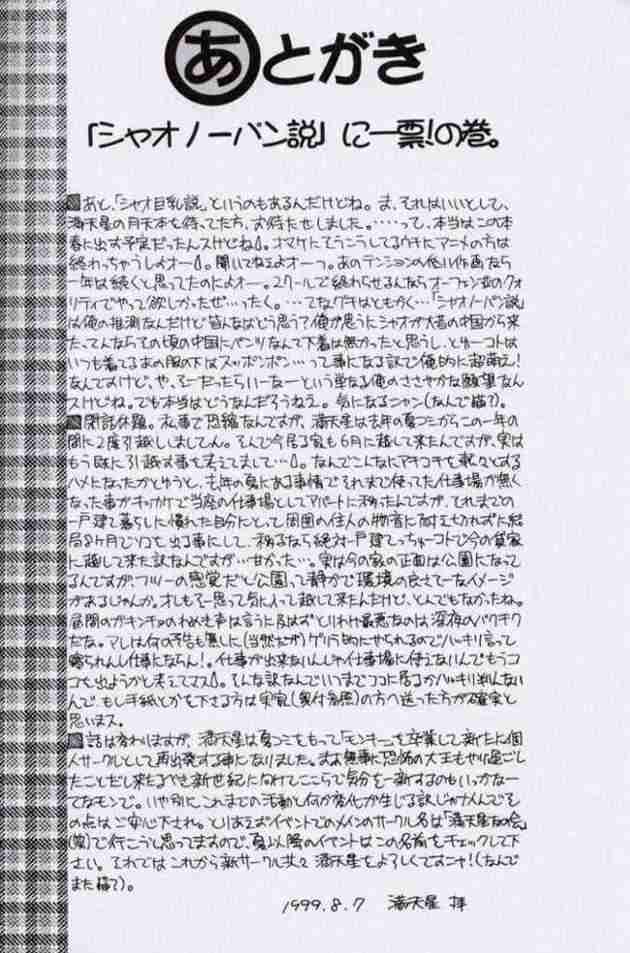 あとがき
「シャオノーパン説」に一票!の巻。
あと、「シャオ巨乳説」というのもあるんだけどね。ま、それはいいとして、
満天星の月天本を待ってた方、お待たせしました。……って、本当はこの本
春に出す予定だったんスけどね。オマケにそうこうしてるウチにアニメの方は
終わっちゃうしよオー。聞いてねェよオーっ。あのテンションの低い作画なら
一年は続くと思ってたのによオー。2クールで終わらせるんならオーフェン並のクォ
リティでやって欲しかったぜ…ったく。…てなグチはともかく…「シャオノーパン説」
は俺の推測なんだけど皆んなはどう思う?俺が思うにシャオが大昔の中国から来
たってんならその頃の中国にパンツなんて下着は無かったと思うし、とゆーコトは
いつも着てるあの服の下はスッポンポン…って事になる訳で俺的に超萌え!
なんですけど。や、そーだったらいーなーという単なる俺のささやかな願望なん
スけどね。でも本当はどうなんだろうねえ。気になるニャン(なんで猫?)。
閑話休題。私事で恐縮なんですが、満天星は去年の夏コミからこの一年の
間に2度引越ししましてん。そんで今居る家も6月に越して来たんですが、実は
もう既に引越す事を考えてまして…。なんでこんなにアチコチを転々とする
ハメになったかとゆうと、去年の夏にある事情でそれまで使ってた仕事場が無く
なった事がキッカケで当座の仕事場としてアパートに移ったんですが、それまでの
一戸建て暮らしに慣れた自分にとって周囲の住人の物音に耐えきれずに結
局8ヶ月でソコを出る事にして、移るなら絶対一戸建てっちゅーコトで今の貸家
に越して来た訳なんですが…甘かった…。実は今の家の正面は公園になって
るんですが、フツーの感覚だと公園って静かで環境の良さてーなイメージ
があるじゃんか。オレもそー思って気に入って越して来たんだけど、とんでもなかったね。
昼間のガキンチョのわめき声は言うに及ばずとりわけ最悪なのは深夜のバクチク
だな。アレは何の予告も無しに(当然だが)ゲリラ的にやられるのでハッキリ言って
眠られんし仕事にならん!。仕事が出来ないんじゃ仕事場に使えないんでもうコ
コを出ようかと考えてマス。そんな訳なんでいつまでココに居るかハッキリ判んない
んで、もし手紙とかを下さる方は実家(奥付参照)の方へ送った方が確実と
思いまス。
話は変わりますが、満天星は夏コミをもって「モンキー」を卒業して新たに個
人サークルとして再出発する事になりました。まぁ無事に恐怖の大王もやり過ごし
たことだし来たるべき新世紀に向けてここらで気分を一新するのもいっかなー
てなモンで。いや別にこれまでの活動と何か変化が生じる訳じゃけんでそ
の点はご安心下され。とりあえずイベントでのメインのサークル名は「満天星友の会」
(笑)で行こうと思ってますので、夏以降のイベントはこの名前をチェックして下
さい。それではこれから新サークル共々満天星をよろしくですニャ!(なんで
また猫?)。
1999.8.7 満天星 拝